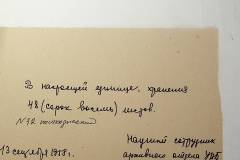 В настоящей единице хранения
48 (сорок восемь) листов.
Научный сотрудник
13 сентября 1958 г.
архивного отдела